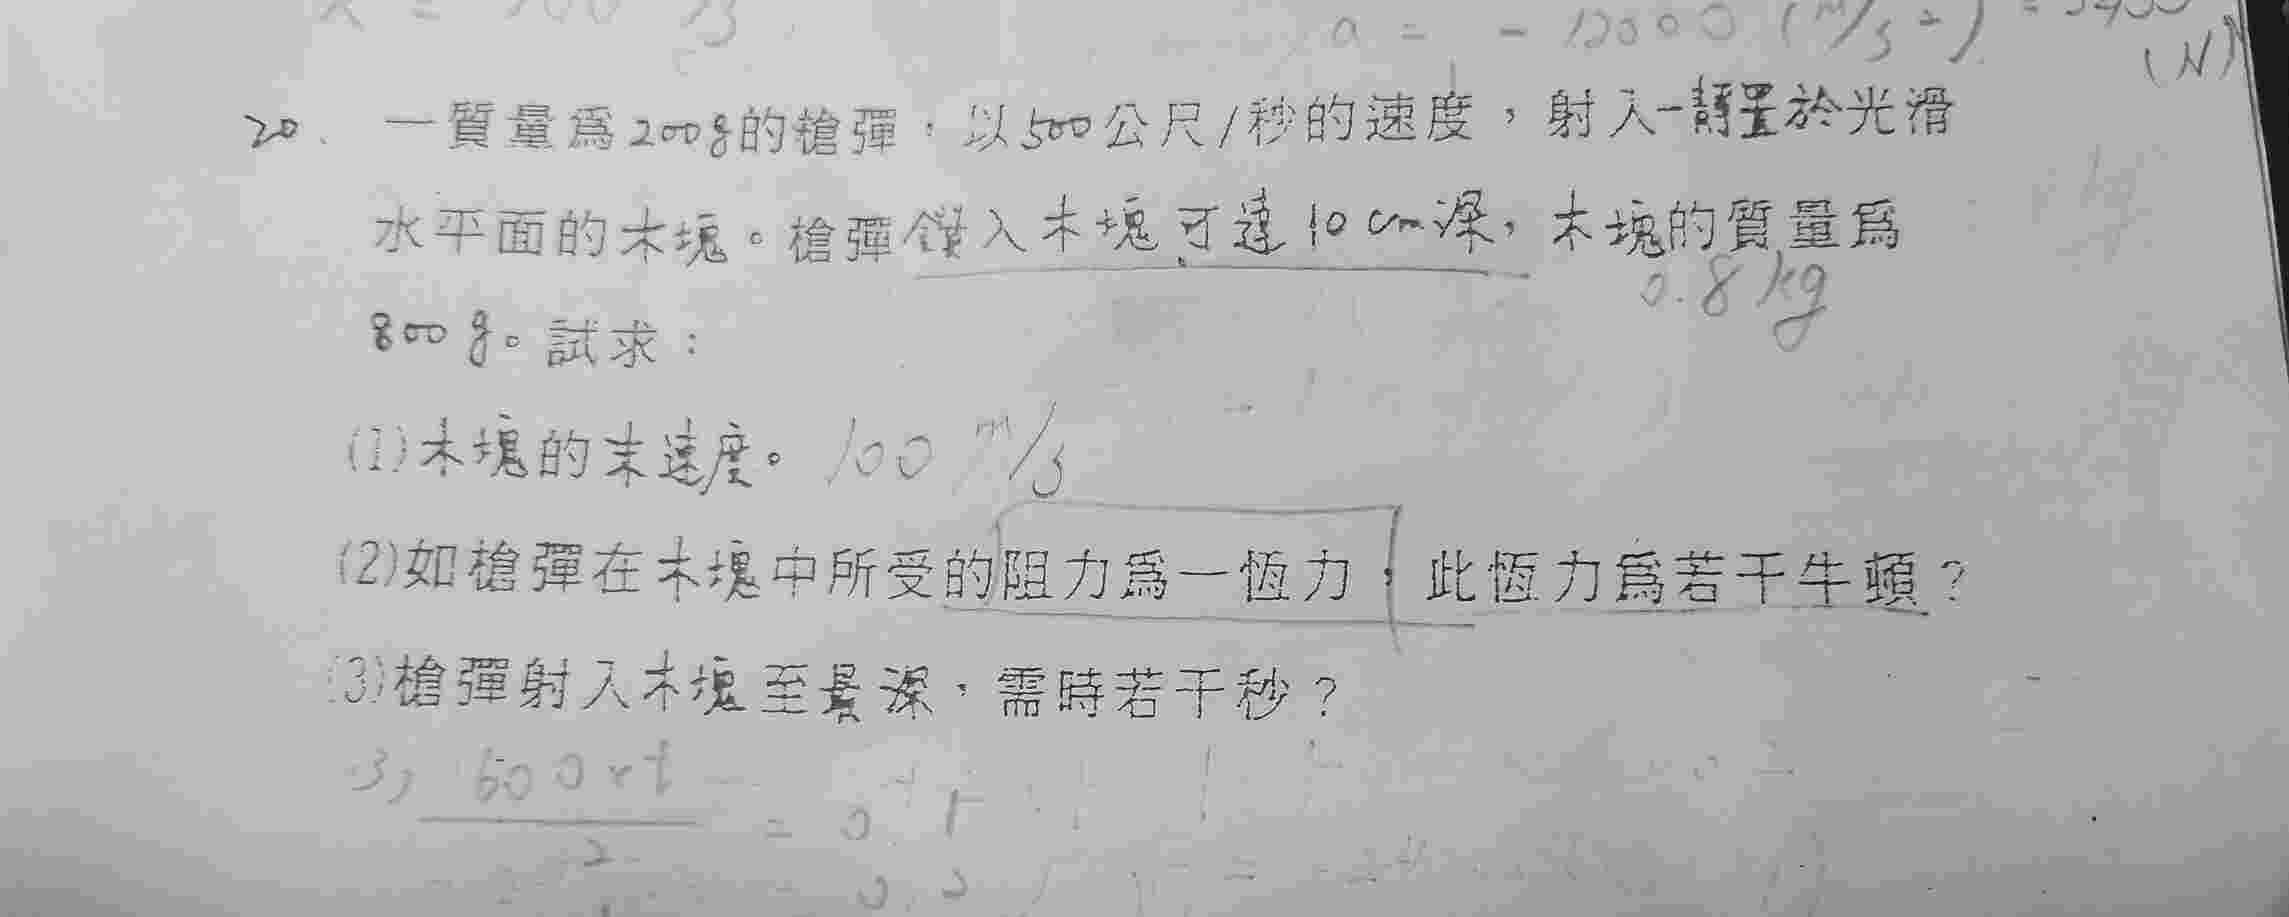 a = - 12000 (m/s²)
(N)
20. 一質量為200g的槍彈，以500公尺/秒的速度，射入一靜置於光滑
水平面的木塊。槍彈鑽入木塊可達10cm深，木塊的質量為
0.8kg
800g。試求：
(1)木塊的末速度。 100 m/s
(2)如槍彈在木塊中所受的阻力為一恆力，此恆力為若干牛頓？
(3)槍彈射入木塊至最深，需時若干秒？